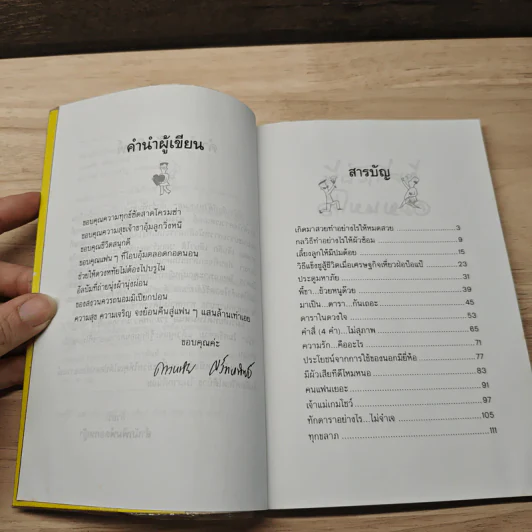 คำนำผู้เขียน
ขอบคุณความทุกข์ซัดสาดโครมซ่า
ขอบคุณความสุขเจ้าขาอุ้มลูกวิ่งหนี
ขอบคุณชีวิตสนุกดี
ขอบคุณแฟน ๆ ที่โอบอุ้มตลอดกอดนอน
ช่วยให้ดวงหทัยไม่ต้องไปบรูไน
อัลบัมที่ถ่ายนุ่งผ้านุ่งผ่อน
ของสงวนควรถนอมมิเปียกปอน
ความสุข ความเจริญ จงย้อนคืนสู่แฟน ๆ แสนล้านเท่าเอย
ขอบคุณค่ะ
สารบัญ
เกิดมาสวยทำอย่างไรให้หมดสวย 3
กลวิธีทำอย่างไรให้ผัวซ้อม 9
เลี้ยงลูกให้มีปมด้อย 15
วิธีแข็งชูสู้ชีวิตเมื่อเศรษฐกิจเหี่ยวฝ่อป้อแป้ 23
ประตูมหาภัย 31
พี่ขา...ช่วยหนูด้วย 39
มาเป็น...ดารา...กันเถอะ 45
ดาราในดวงใจ 53
คำสี่ (4 คำ)...ไม่สุภาพ 65
ความรัก...คืออะไร 71
ประโยชน์จากการใช้ของนอกมียี่ห้อ 77
มีผัวเสียทีดีไหมหนอ 83
คนแฟนเยอะ 91
เจ้าแม่เกมโชว์ 97
ทักดาราอย่างไร...ไม่จำเจ 105
ทุกขลาภ 111